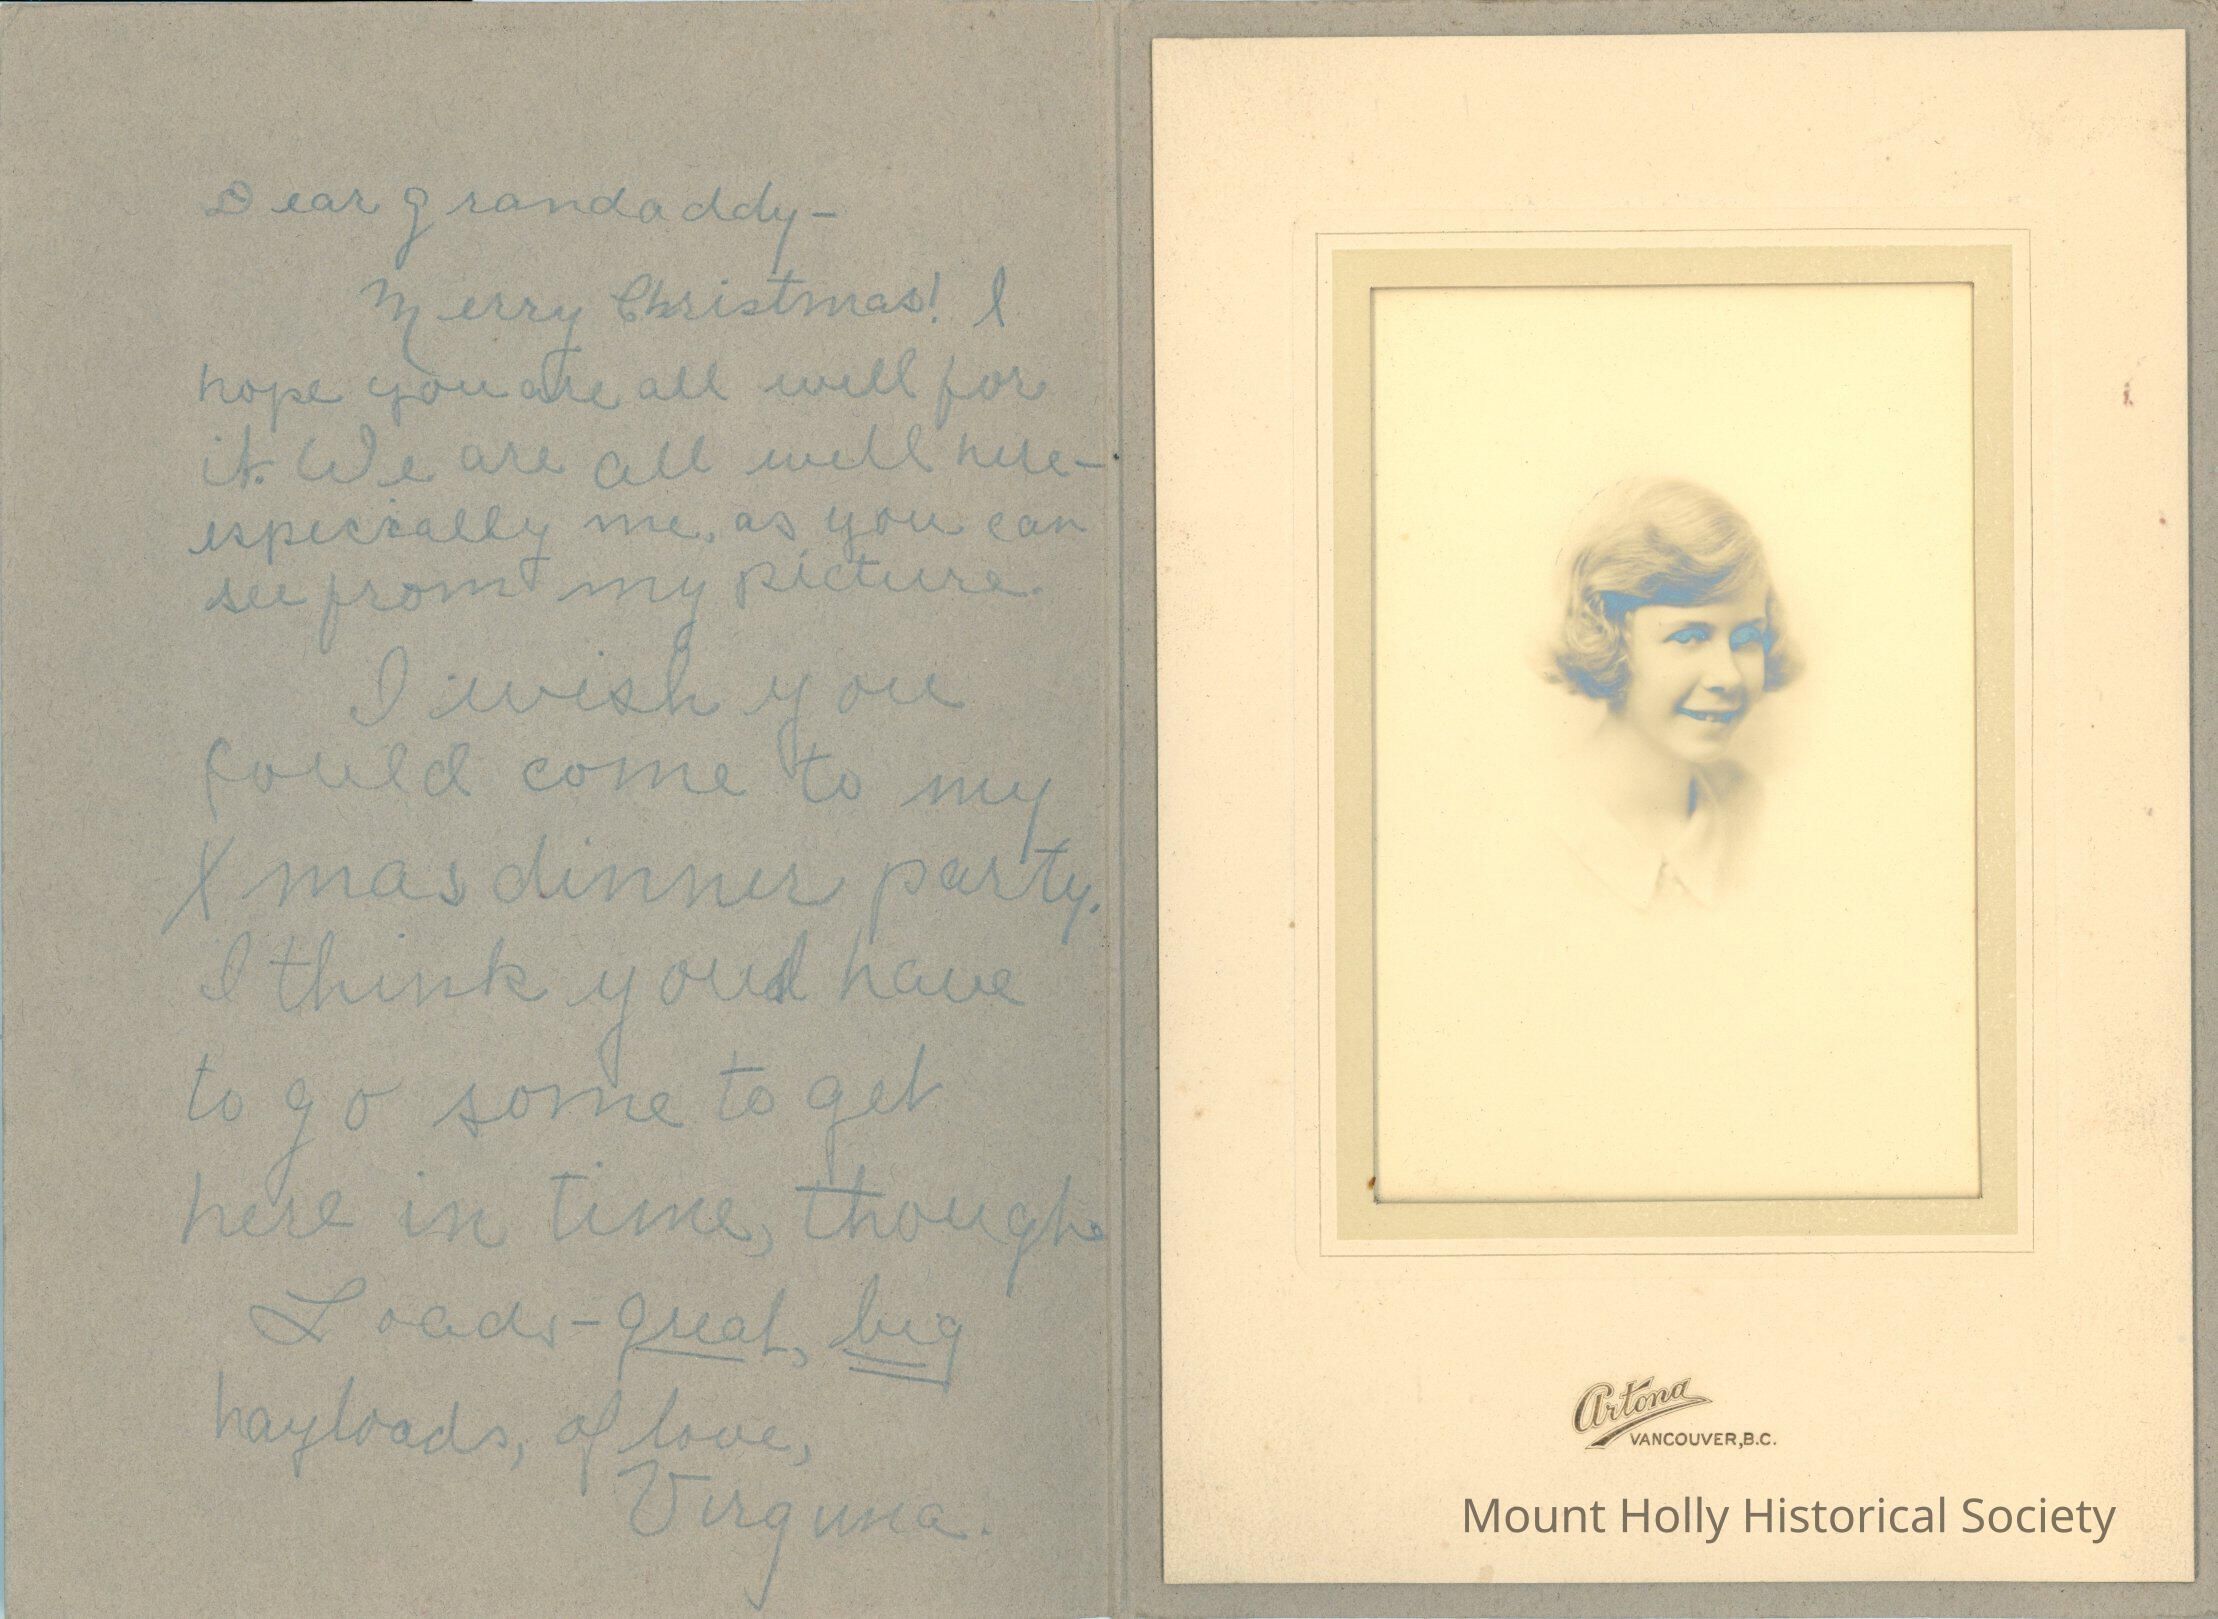 Dear Grandaddy-
Merry Christmas! I
hope you are all well for
it. We are all well here-
especially me, as you can
see from my picture.
I wish you
could come to my
Xmas dinner party.
I think you'd have
to go some to get
here in time, though.
Loads-great, big
hayloads, of love,
Virginia.
Artona
VANCOUVER, B.C.
Mount Holly Historical Society